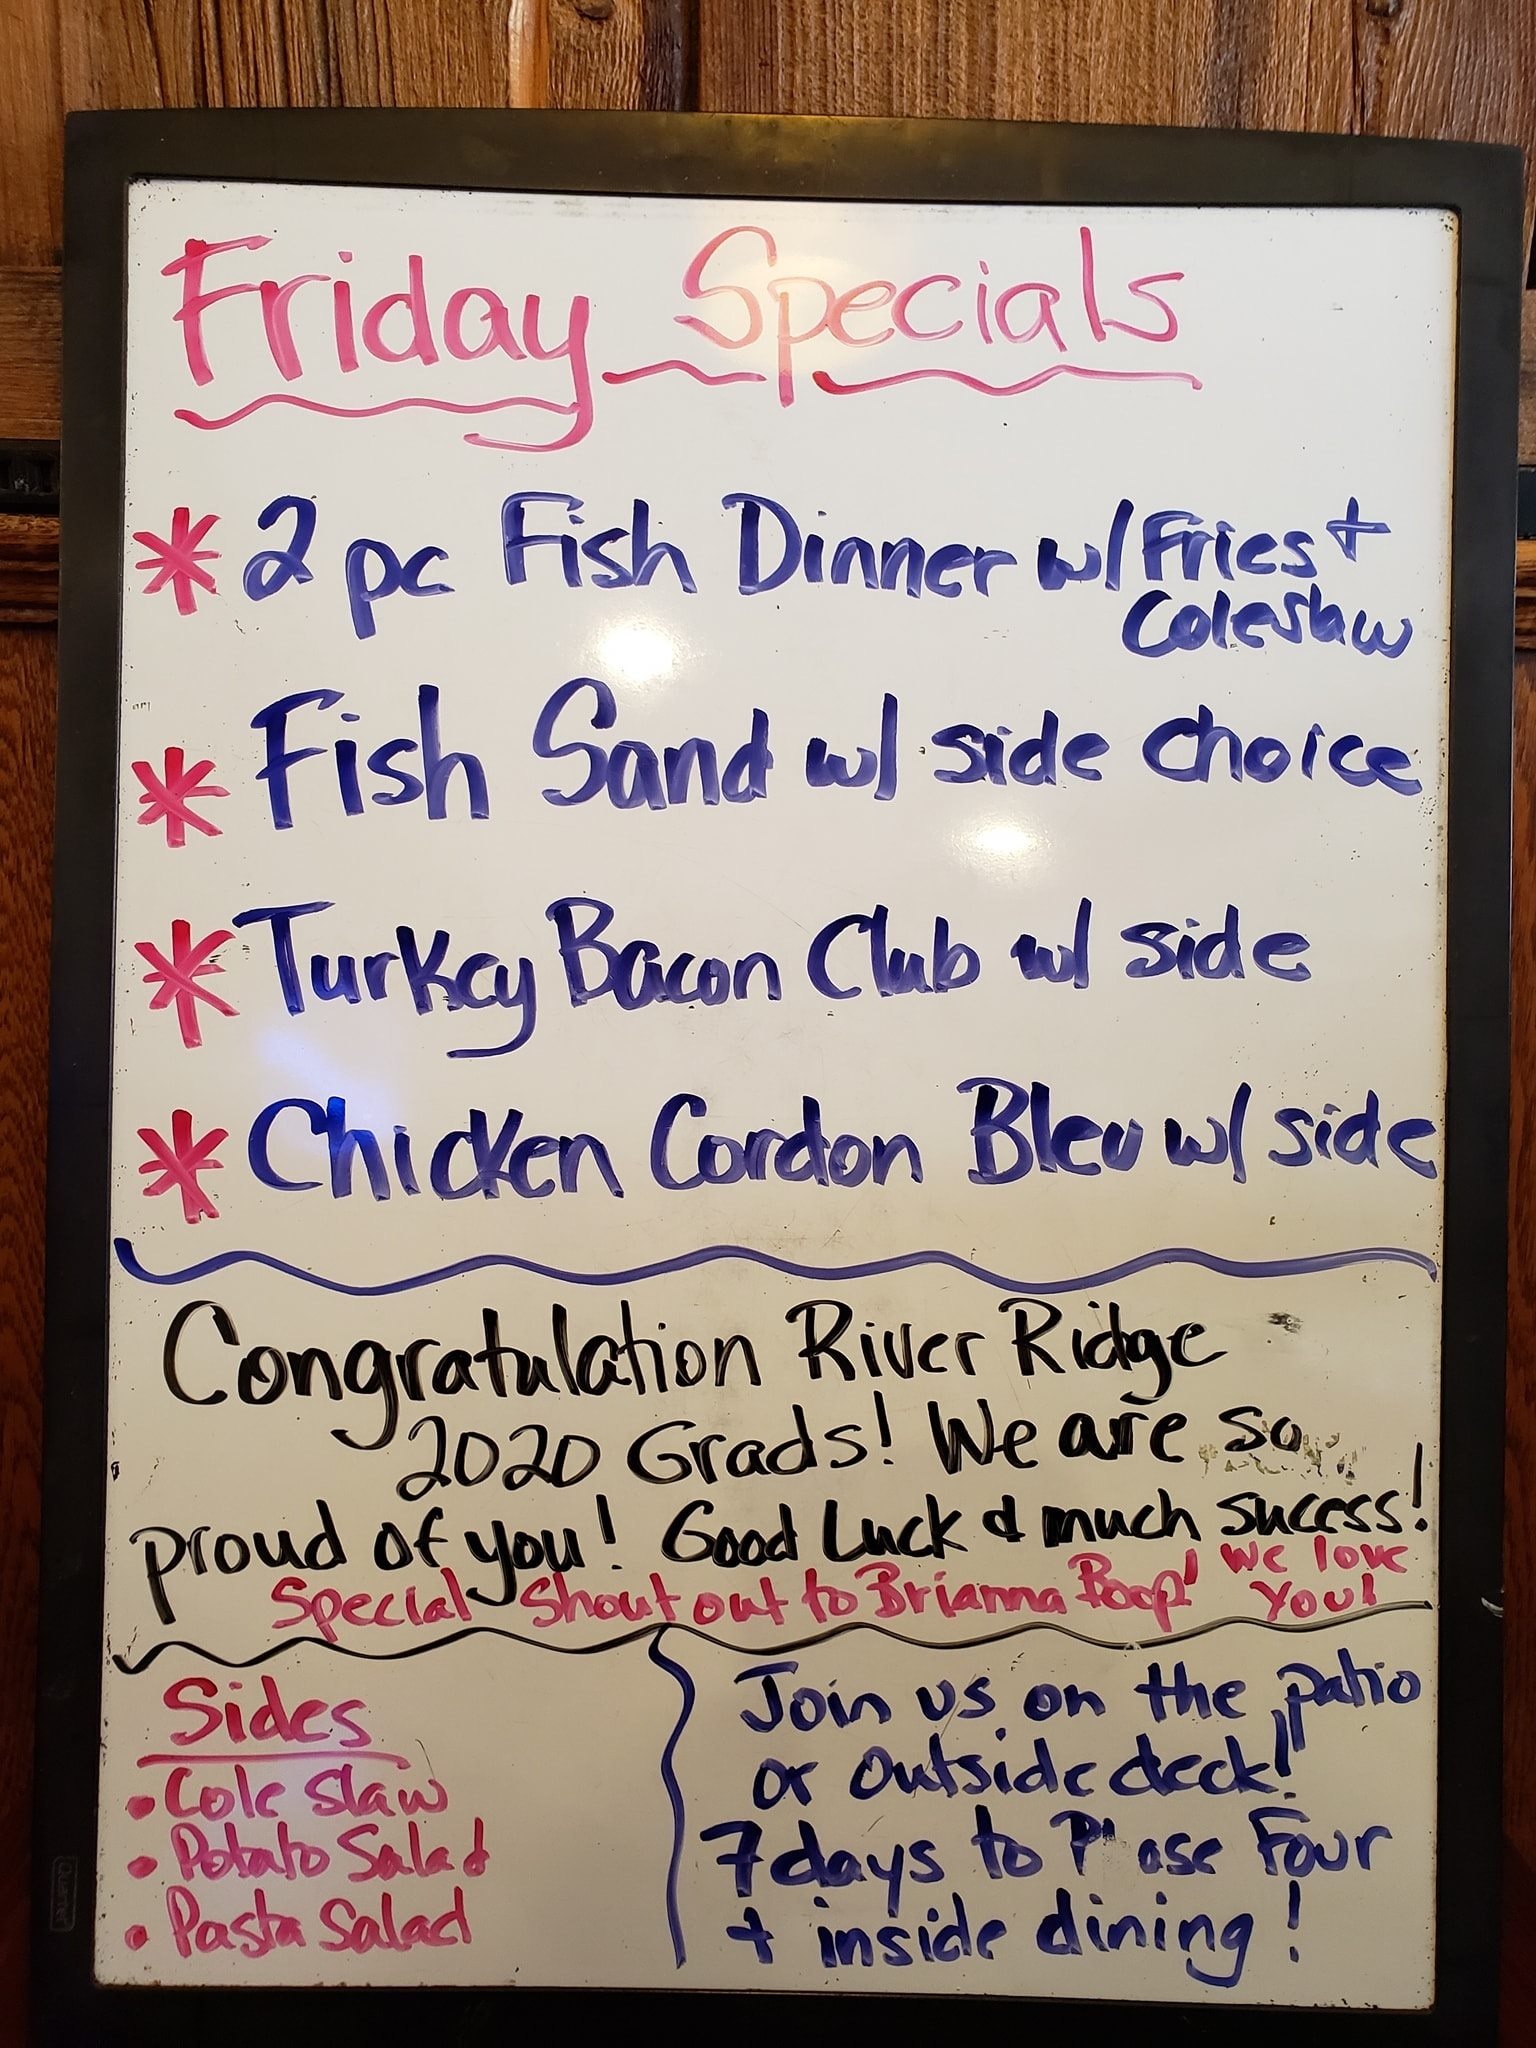 Friday Specials
* 2 pc Fish Dinner w/ Fries +
Coleslaw
* Fish Sand w/ side choice
* Turkey Bacon Club w/ side
* Chicken Cordon Bleu w/ side
Congratulation River Ridge
2020 Grads! We are so
proud of you! Good Luck & much success!
Special Shout out to Brianna Poop! We love
You!
Sides
• Cole Slaw
• Potato Salad
• Pasta Salad
Join us on the patio
or outside deck!
7 days to Phase Four
+ inside dining!
Quartet